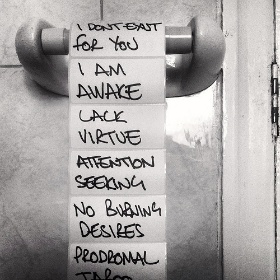 I DON'T EXIST
FOR YOU
I AM
AWAKE
LACK
VIRTUE
ATTENTION
SEEKING
NO BURNING
DESIRES
PRODROMAL
TABOO